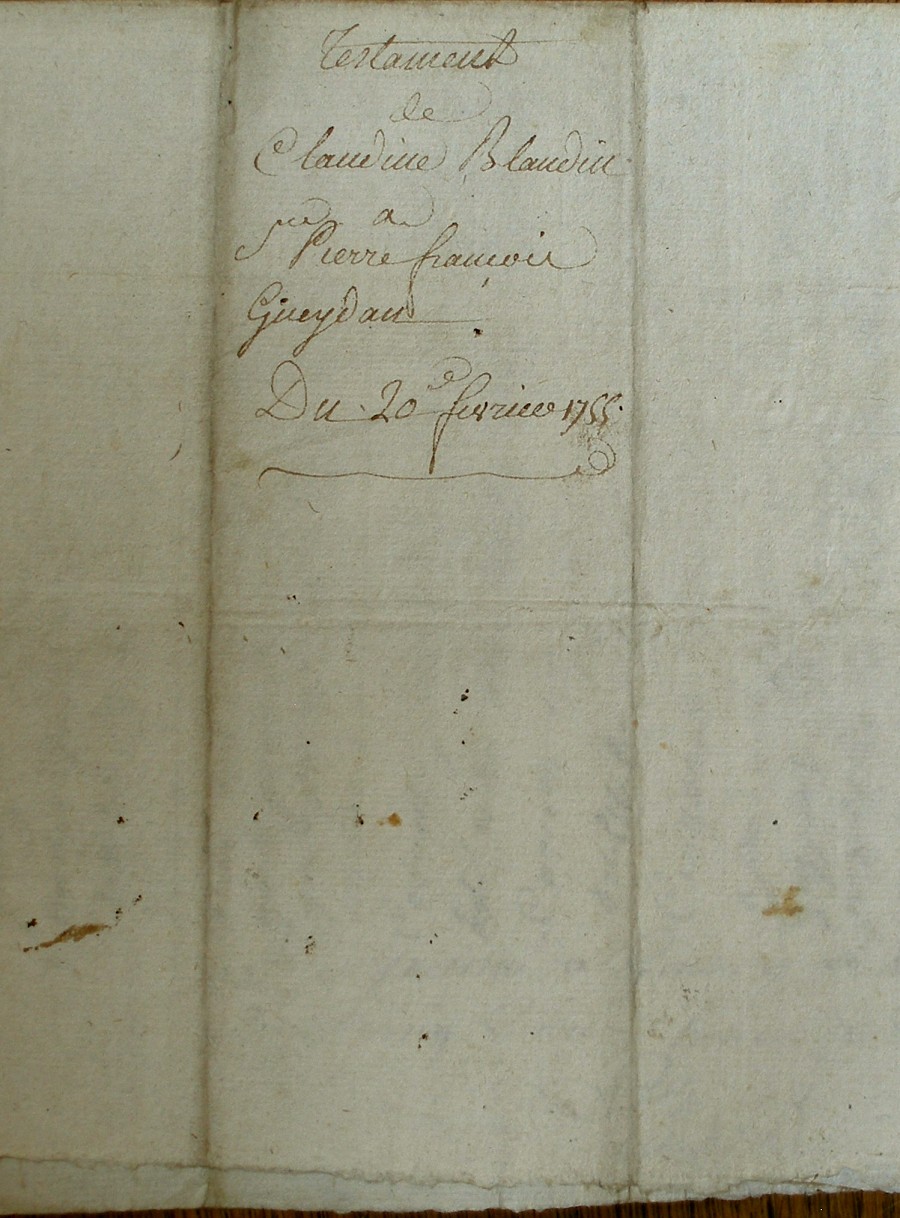 Testament
de
Claudine Blandin
de
Pierre françois
Gueydan
Du 20e fevrier 1755.